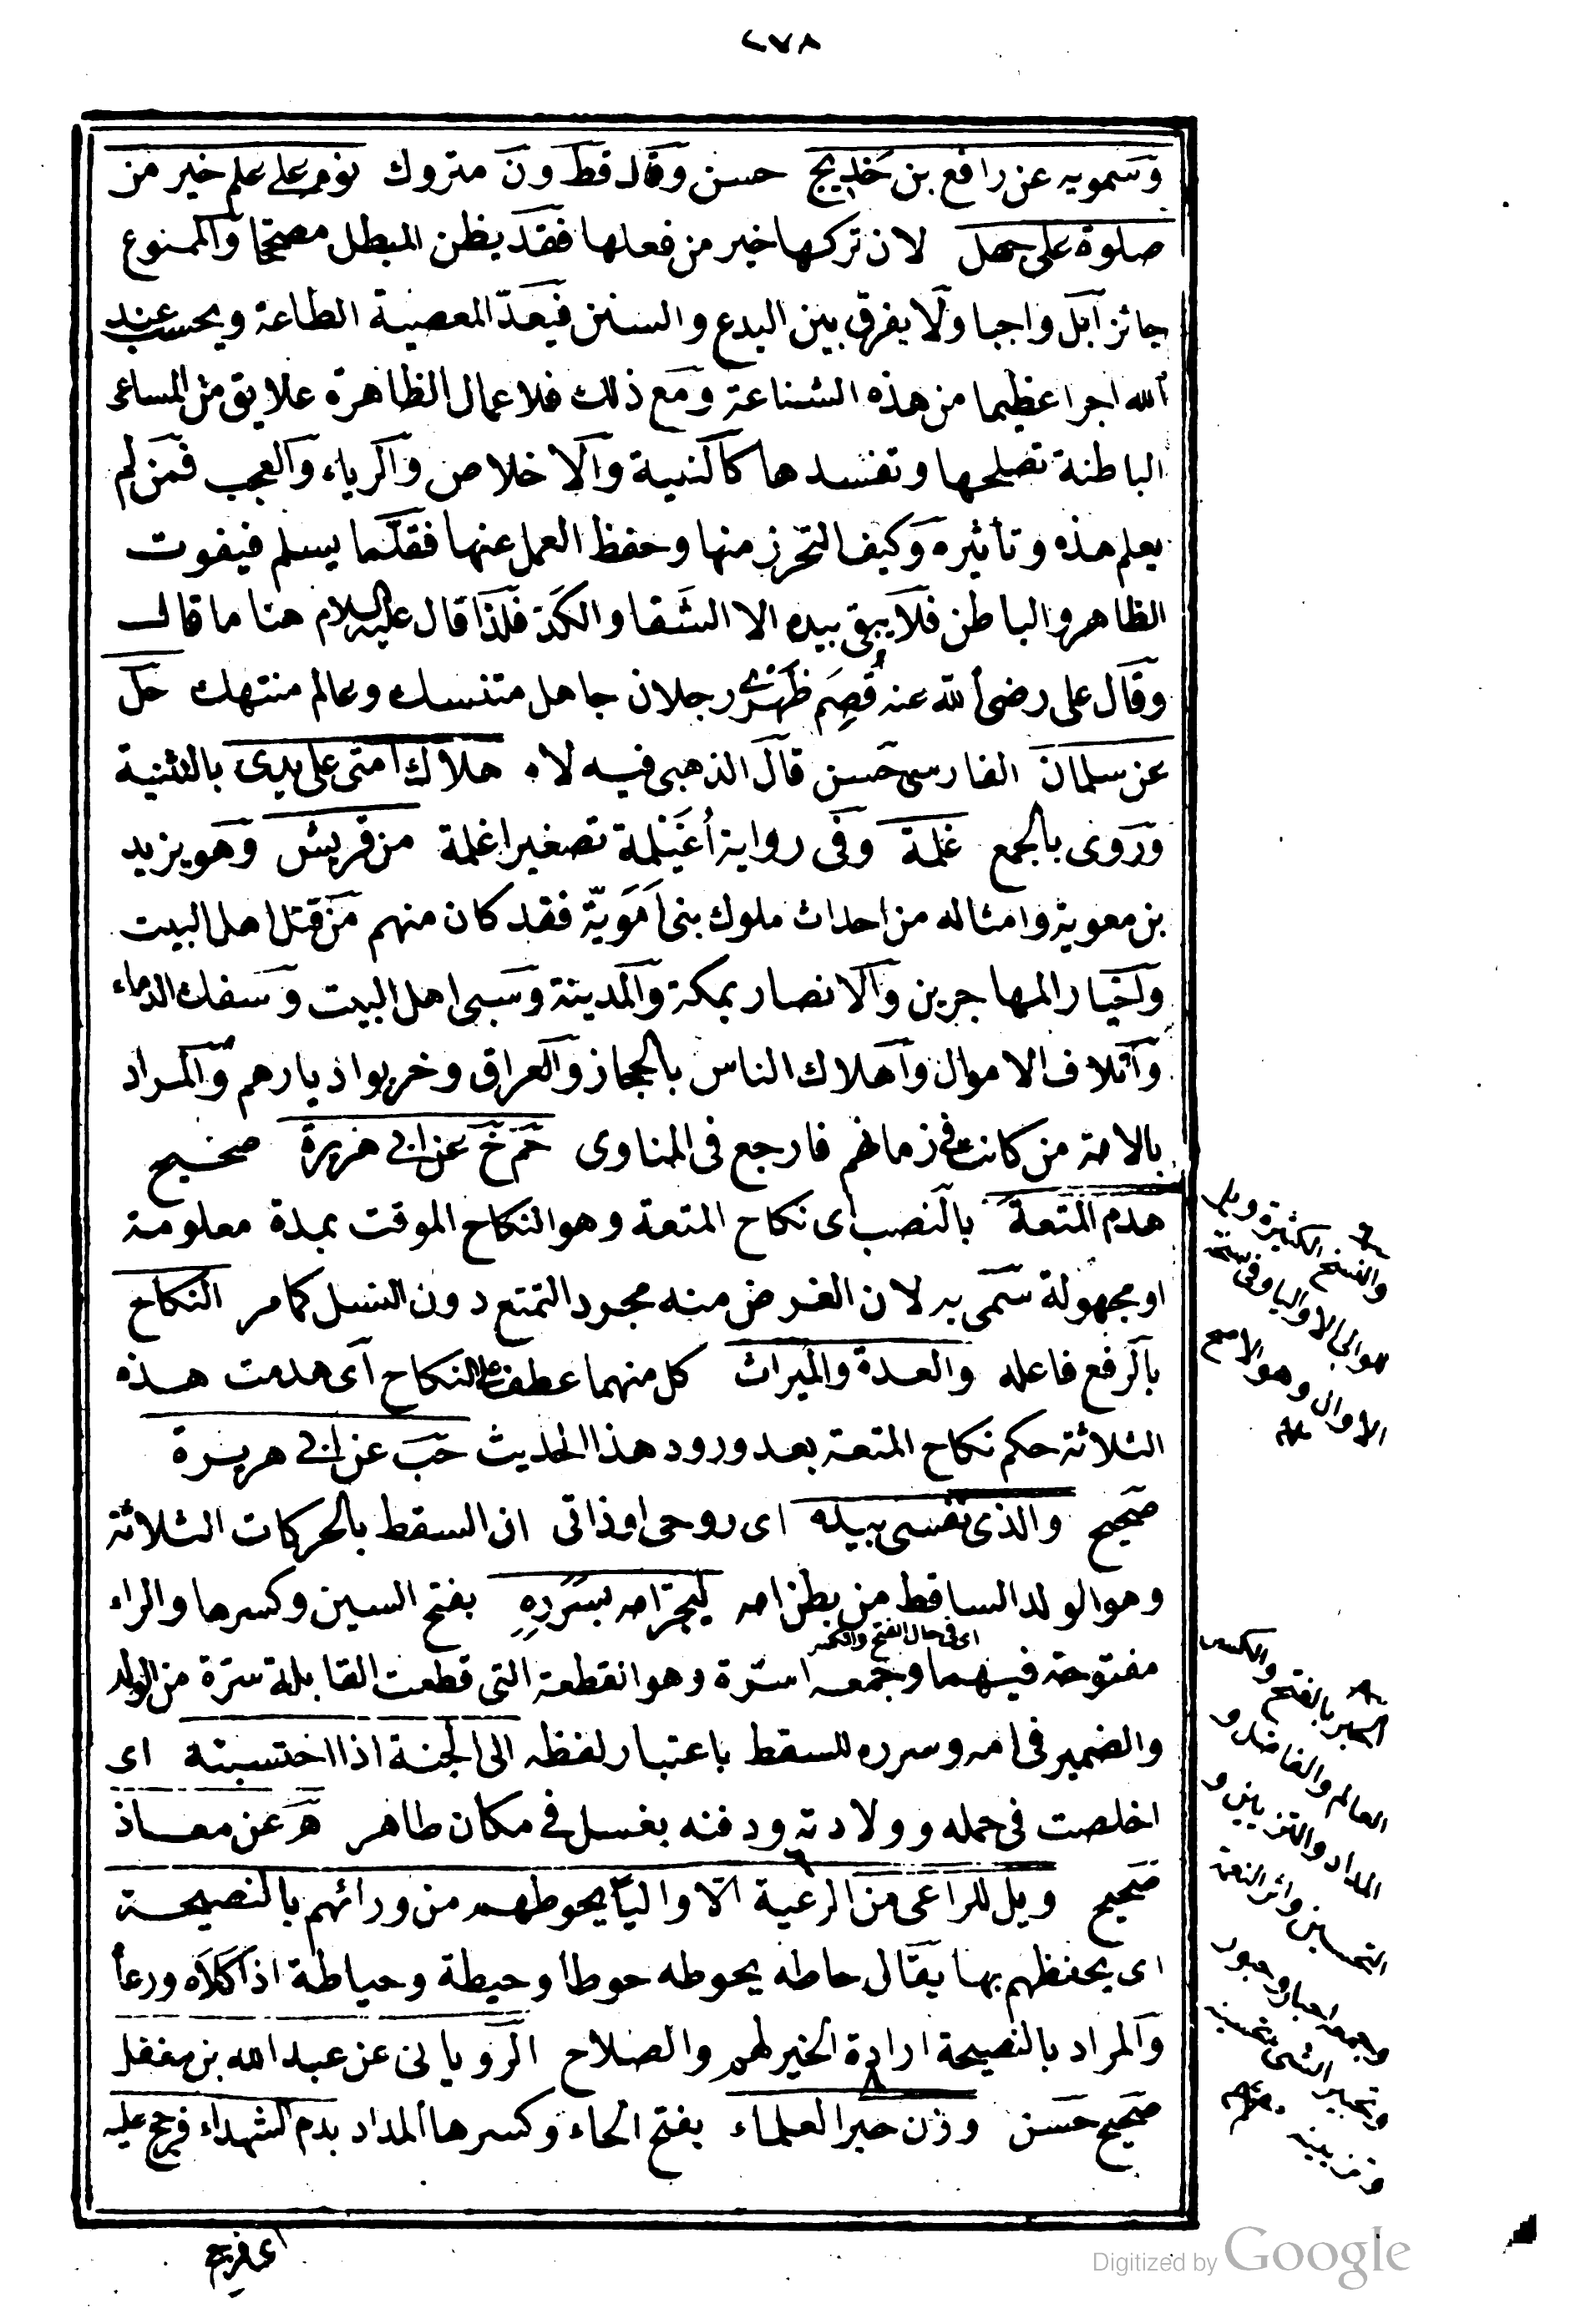 ٢٧٨
وسمويه عن رافع بن خديج حسن وقال قط ون متروك نوم على علم خير من
صلوة على جهل لان تركها خير من فعلها فقد يظن المبطل مصححا والممنوع
جائزا بل واجبا ولا يفرق بين البدع والسنن فيعد المعصية الطاعة ويحسب عند
الله اجرا عظيما من هذه الشناعة ومع ذلك فلاعمال الظاهرة علايق من المساعى
الباطنة تصلحها وتفسدها كالنية والاخلاص والرياء والعجب فمن لم
يعلم هذه وتأثيره وكيف التحرز منها وحفظ العمل عنها فقلما يسلم فيفوت
الظاهر والباطن فلا يبقى بيده الا الشقا والكد فلذا قال عليه السلام هنا ما قال
وقال على رضى الله عنه قصم ظهرى رجلان جاهل متنسك وعالم منتهك حل
عن سلمان الفارسى حسن قال الذهبى فيه لاه هلاك امتى على يدى بالتثنية
وروى بالجمع غلمة وفى رواية أغيلمة تصغير اغلمة من قريش وهو يزيد
بن معوية وامثاله من احداث ملوك بنى اموية فقد كان منهم من قتل اهل البيت
واخيار المهاجرين والانصار بمكة والمدينة وسبى اهل البيت وسفك الدماء
واتلاف الاموال واهلاك الناس بالحجاز والعراق وخربوا ديارهم والمراد
بالامة من كانت فى زمانهم فارجع فى المناوى حم خ عن ابى هريرة صحيح
هدم المتعة بالنصب اى نكاح المتعة وهو النكاح الموقت بمدة معلومة
او مجهولة سمى به لان الغرض منه مجرد التمتع دون النسل كما مر النكاح
بالرفع فاعله والعدة والميراث كل منهما عطف على النكاح اى هدمت هذه
الثلاثة حكم نكاح المتعة بعد ورود هذا الحديث حب عن ابى هريرة
صحيح والذى نفسى بيده اى روحى او ذاتى ان السقط بالحركات الثلاثة
وهو الولد الساقط من بطن امه ليجر امه بسرره بفتح السين وكسرها والراء
اى فى حال الفتح والكسر
مفتوحة فيهما وجمعه اسرة وهو انقطعة التى قطعت القابلة سترة من الولد
والضمير فى امه وسرره للسقط باعتبار لفظه الى الجنة اذا احتسبته اى
اخلصت فى حمله وولادته ودفنه بغسل فى مكان طاهر هـ عن معاذ
صحيح ويل للراعى من الرعية الا واليا يحوطهم من ورائهم بالنصيحة
اى يحفظهم بها يقال حاطه يحوطه حوطا وحيطة وحياطة اذا كلاه ورعا
والمراد بالنصيحة ارادة الخير لهم والصلاح الرويانى عن عبد الله بن مغفل
صحيح حسن وزن حبر العلماء بفتح الحاء وكسرها المداد بدم الشهداء فرجح عليه
اى فرجح
والنسخ الكثيرة ويل
هوالى الا واليا وفى نسخة
الا وال وهو الاصح
الحبر بالفتح والكسر
العالم والفاضل و
المداد والتزيين و
التحسين واثر النعمة
وجمعه احبار وحبور
وتحبير الشئ تحسينه
وتزيينه
Digitized by Google